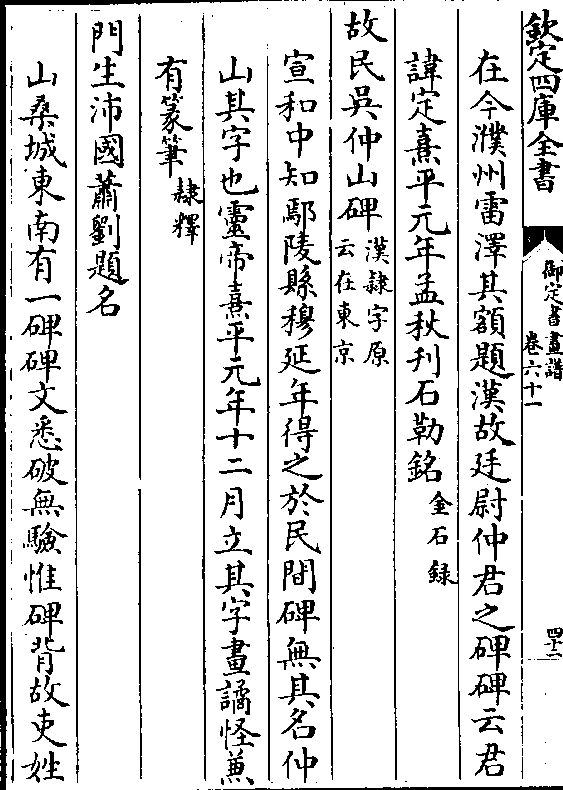 欽定四庫全書
御定書畫譜
卷六十一
四十二
在今濮州雷澤其額題漢故廷尉仲君之碑碑云君
諱定熹平元年孟秋刊石勒銘金石録
故民吳仲山碑漢隸字原云在東京
宣和中知鄢陵縣穆延年得之於民間碑無其名仲
山其字也靈帝熹平元年十二月立其字畫譎怪兼
有篆筆隸釋
門生沛國蕭劉題名
山桑城東南有一碑碑文悉破無驗惟碑背故吏姓